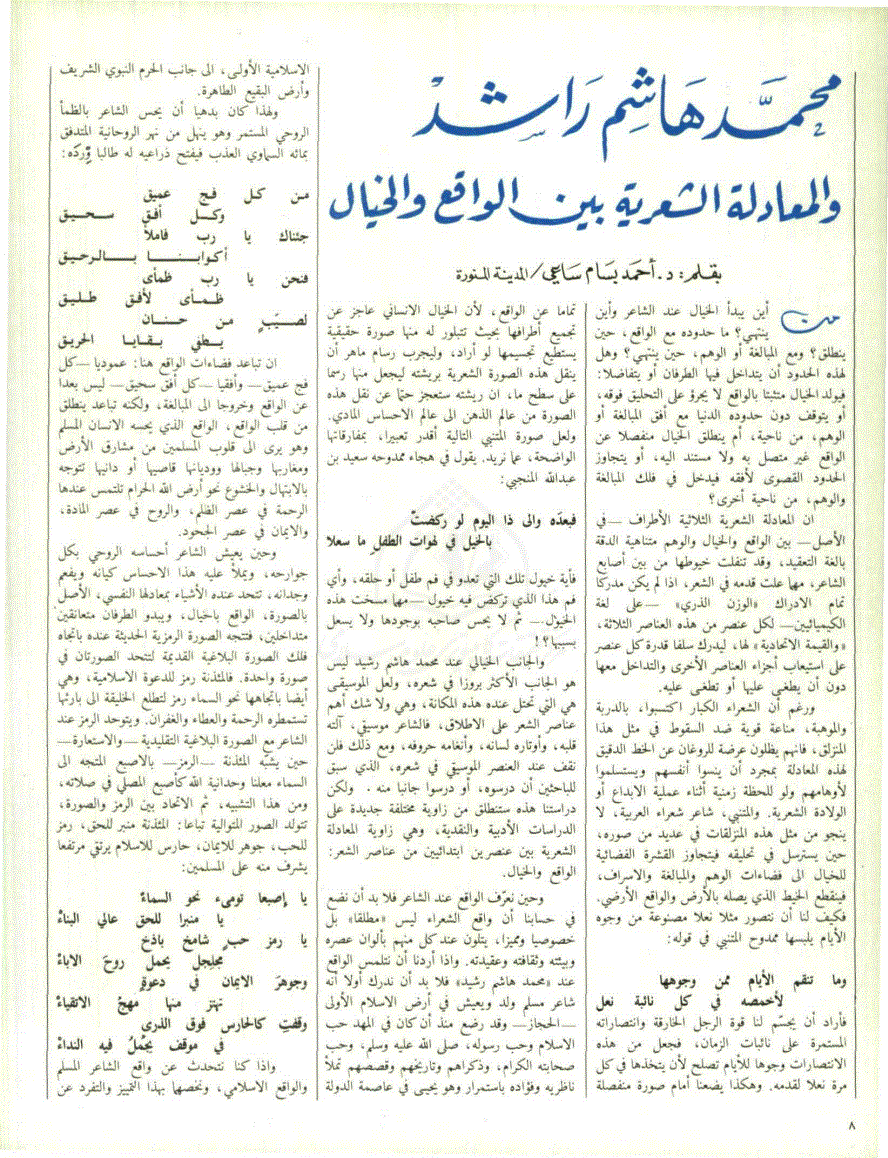 محمد هاشم راشد
والمعادلة الشعرية بين الواقع والخيال
بقلم: د. أحمد بسام ساعي / المدينة المنورة
من أين يبدأ الخيال عند الشاعر وأين
ينتهي؟ ما حدوده مع الواقع، حين
ينطلق؟ ومع المبالغة أو الوهم، حين ينتهي؟ وهل
لهذه الحدود أن يتداخل فيها الطرفان أو يتفاضلا:
فيولد الخيال متشبثا بالواقع لا يجرؤ على التحليق فوقه،
أو يتوقف دون حدوده الدنيا مع أفق المبالغة أو
الوهم، من ناحية، أم ينطلق الخيال منفصلا عن
الواقع غير متصل به ولا مستند اليه، أو يتجاوز
الحدود القصوى لأفقه فيدخل في فلك المبالغة
والوهم، من ناحية أخرى؟
ان المعادلة الشعرية الثلاثية الأطراف —في
الأصل— بين الواقع والخيال والوهم متناهية الدقة
بالغة التعقيد، وقد تنفلت خيوطها من بين أصابع
الشاعر، مهما علت قدمه في الشعر، اذا لم يكن مدركا
تمام الادراك «الوزن الذري» —على لغة
الكيميائيين— لكل عنصر من هذه العناصر الثلاثة،
«والقيمة الاتحادية» لها، ليدرك سلفا قدرة كل عنصر
على استيعاب أجزاء العناصر الأخرى والتداخل معها
دون أن يطغى عليها أو تطغى عليه.
ورغم أن الشعراء الكبار اكتسبوا، بالدربة
والموهبة، مناعة قوية ضد السقوط في مثل هذا
المنزلق، فانهم يظلون عرضة للروغان عن الخط الدقيق
لهذه المعادلة بمجرد أن ينسوا أنفسهم ويستسلموا
لأوهامهم ولو للحظة زمنية أثناء عملية الابداع أو
الولادة الشعرية. والمتنبي، شاعر شعراء العربية، لا
ينجو من مثل هذه المنزلقات في عديد من صوره،
حين يسترسل في تحليقه فيتجاوز القشرة الفضائية
للخيال الى فضاءات الوهم والمبالغة والاسراف،
فينقطع الخيط الذي يصله بالأرض والواقع الأرضي.
فكيف لنا أن نتصور مثلا نعلا مصنوعة من وجوه
الأيام يلبسها ممدوح المتنبي في قوله:
وما تنقم الأيام ممن وجوهها
لأخمصه في كل نائبة نعل
فأراد أن يجسّم لنا قوة الرجل الخارقة وانتصاراته
المستمرة على نائبات الزمان، فجعل من هذه
الانتصارات وجوها للأيام تصلح لأن يتخذها في كل
مرة نعلا لقدمه. وهكذا يضعنا أمام صورة منفصلة
تماما عن الواقع، لأن الخيال الانساني عاجز عن
تجميع أطرافها بحيث تتبلور له منها صورة حقيقية
يستطيع تجسيمها لو أراد، وليجرب رسام ماهر أن
ينقل هذه الصورة الشعرية بريشته ليجعل منها رسما
على سطح ما، ان ريشته ستعجز حتما عن نقل هذه
الصورة من عالم الذهن الى عالم الاحساس المادي.
ولعل صورة المتنبي التالية أقدر تعبيرا، بمفارقاتها
الواضحة، عما نريد. يقول في هجاء ممدوحه سعيد بن
عبدالله المنجبي:
فبعدَه والى ذا اليوم لو ركضتْ
بالخيل في لهوات الطفل ما سعلا
فأية خيول تلك التي تعدو في فم طفل أو حلقه، وأي
فم هذا الذي تركض فيه خيول —مهما مسخت هذه
الخيول— ثم لا يحس صاحبه بوجودها ولا يسعل
بسببها؟!
والجانب الخيالي عند محمد هاشم رشيد ليس
هو الجانب الأكثر بروزا في شعره، ولعل الموسيقى
هي التي تحتل عنده هذه المكانة، وهي ولا شك أهم
عناصر الشعر على الاطلاق، فالشاعر موسيقي، آلته
قلبه، وأوتاره لسانه، وأنغامه حروفه، ومع ذلك فلن
نقف عند العنصر الموسيقي في شعره، الذي سبق
للباحثين أن درسوه، أو درسوا جانبا منه . ولكن
دراستنا هذه ستنطلق من زاوية مختلفة جديدة على
الدراسات الأدبية والنقدية، وهي زاوية المعادلة
الشعرية بين عنصرين ابتدائيين من عناصر الشعر:
الواقع والخيال.
وحين نعرّف الواقع عند الشاعر فلا بد أن نضع
في حسابنا أن واقع الشعراء ليس «مطلقا» بل
خصوصيا ومميزا، يتلون عند كل منهم بألوان عصره
وبيئته وثقافته وعقيدته. واذا أردنا أن نتلمس الواقع
عند «محمد هاشم رشيد» فلا بد أن ندرك أولا أنه
شاعر مسلم ولد ويعيش في أرض الاسلام الأولى
—الحجاز— وقد رضع منذ أن كان في المهد حب
الاسلام وحب رسوله، صلى الله عليه وسلم، وحب
صحابته الكرام، وذكراهم وتاريخهم وقصصهم تملأ
ناظريه وفؤاده باستمرار وهو يحيى في عاصمة الدولة
الاسلامية الأولى، الى جانب الحرم النبوي الشريف
وأرض البقيع الطاهرة.
ولهذا كان بدهيا أن يحس الشاعر بالظمأ
الروحي المستمر وهو ينهل من نهر الروحانية المتدفق
بمائه السماوي العذب فيفتح ذراعيه له طالبا وِرده:
من كل فج عميق
وكل أفق سحيق
جئناك يا رب فاملأ
أكوابنا بالرحيق
فنحن يا رب ظمأى
ظمأى لأفق طليق
لصيّبٍ من حنان
يطفي بقايا الحريق
ان تباعد فضاءات الواقع هنا: عموديا —كل
فج عميق— وأفقيا —كل أفق سحيق— ليس بعدا
عن الواقع وخروجا الى المبالغة، ولكنه تباعد ينطلق
من قلب الواقع، الواقع الذي يحسه الانسان المسلم
وهو يرى الى قلوب المسلمين من مشارق الأرض
ومغاربها وجبالها ووديانها قاصيها أو دانيها تتوجه
بالابتهال والخشوع نحو أرض الله الحرام تلتمس عندها
الرحمة في عصر الظلم، والروح في عصر المادة،
والايمان في عصر الجحود.
وحين يعيش الشاعر أحاسسه الروحي بكل
جوارحه، ويملأ عليه هذا الاحساس كيانه ويفعم
وجدانه، تتحد عنده الأشياء بمعادلها النفسي، الأصل
بالصورة، الواقع بالخيال، ويبدو الطرفان متعانقين
متداخلين، فتتجه الصورة الرمزية الحديثة عنده باتجاه
فلك الصورة البلاغية القديمة لتتحد الصورتان في
صورة واحدة. فالمئذنة رمز للدعوة الاسلامية، وهي
أيضا باتجاهها نحو السماء رمز لتطلع الخليقة الى بارئها
تستمطره الرحمة والعطاء والغفران. ويتوحد الرمز عند
الشاعر مع الصورة البلاغية التقليدية —والاستعارة—
حين يشبّه المئذنة —الرمز— بالاصبع المتجه الى
السماء معلنا وحدانية الله كأصبع المصلي في صلاته،
ومن هذا التشبيه، ثم الاتحاد بين الرمز والصورة،
تتولد الصور المتوالية تباعا: المئذنة منبر للحق، رمز
للحب، جوهر للايمان، حارس للاسلام يرتقي مرتفعا
يشرف منه على المسلمين:
يا إصبعا تومىء نحو السماءْ
يا منبرا للحق عالي البناءْ
يا رمز حبٍ شامخ باذخ
مجلجل يحمل روحَ الاباءْ
وجوهرَ الايمان في دعوةٍ
تهتز منها مهجُ الاتقياءْ
وقفتِ كالحارس فوق الذرى
في موقف يجْمُلُ فيه النداءْ
واذا كنا نتحدث عن واقع الشاعر المسلم
والواقع الاسلامي، ونخصها بهذا التمييز والتفرد عن
٨